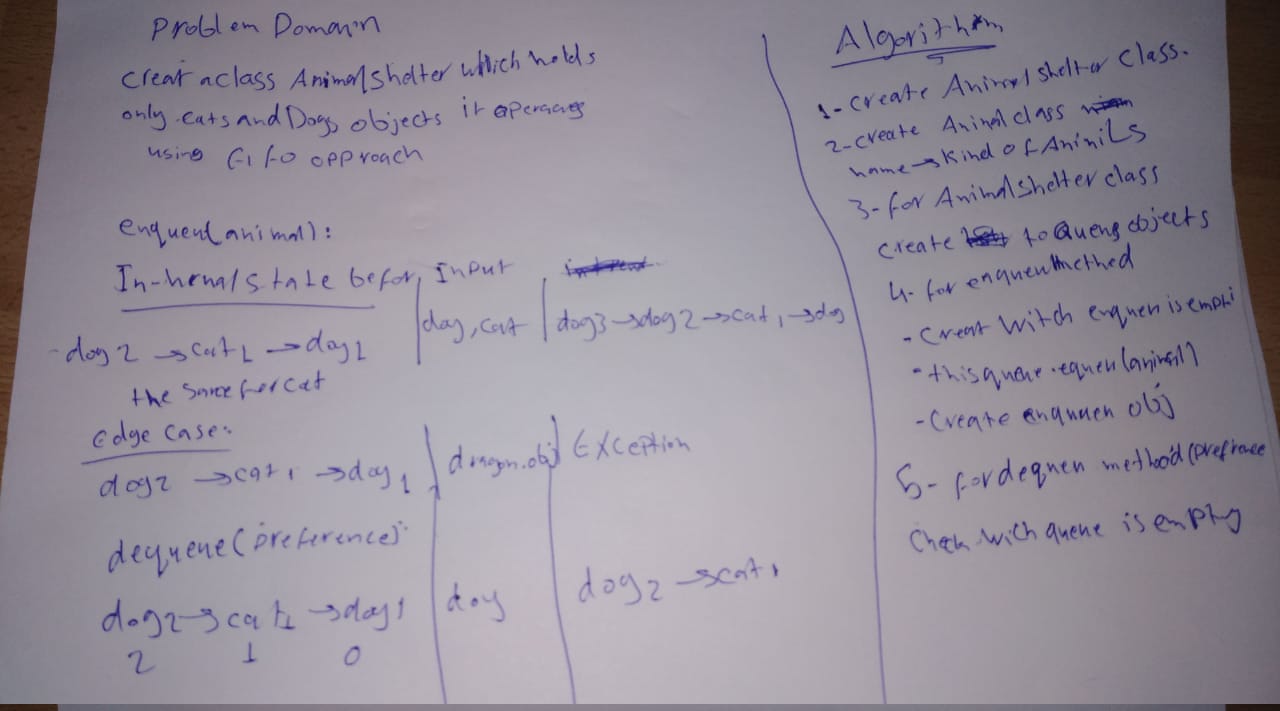 Problem Domain
Creat a class AnimalShelter which holds
only cats and Dogs objects it operaes
using FiFo opproach
enqueu(animal):
Internal state befor, Input
dog2 → cat1 → dog1 | dog, cat | dog3 → dog2 → cat1 → dog
the same for cat
Edge case:
dog2 → cat1 → dog1 | dragon.obj | Exception
dequeue(preference):
dog2 → cat1 → dog1 | dog | dog2 → cat1
2 1 0
Algorithm
1- Create Animal shelter class.
2- create Animal class
name → kind of Animils
3- for AnimalShelter class
create to Queue objects
4- for enqueu methed
- Creat witch enqueu is empti
- this queue.equeu(animal)
- Create enqueu obj
5- for dequeu method (prefrence
Check witch queue is empty